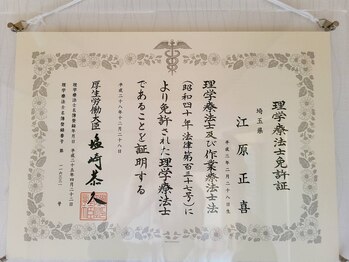 理学療法士免許証
埼玉県
江原正喜
平成二年二月二十八日生
理学療法士及び作業療法士法
(昭和四十年法律第百三十七号)に
より免許された理学療法士
であることを証明する
平成二十八年十二月二十八日
厚生労働大臣 塩崎恭久
理学療法士名簿登録年月日 平成二十五年四月二十二日
理学療法士名簿登録番号 第 号